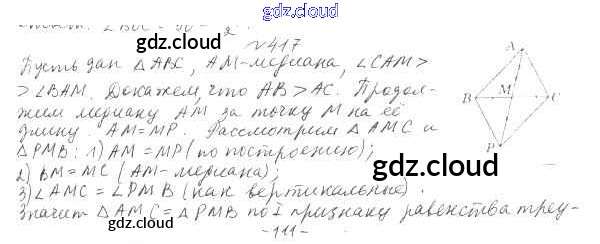 gdz.cloud
gdz.cloud
№417
Пусть дан △ABC, AM-медиана, ∠CAM>
> ∠BAM. Докажем, что AB > AC. Продол-
жим медиану AM за точку M на её
длину. AM=MP. Рассмотрим △AMC и
△PMB: 1) AM = MP (по построению);
2) BM = MC (AM-медиана);
3) ∠AMC = ∠PMB (как вертикальные).
Значит △AMC = △PMB по I признаку равенства треу-
-111-
A
B
M
C
P
gdz.cloud
gdz.cloud
gdz.cloud